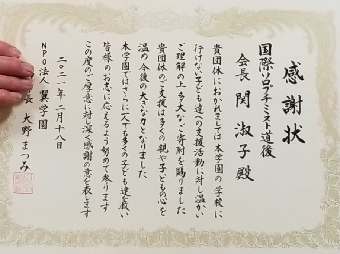 感謝状
国際ソロプチミスト道後
会長 関 淑子 殿
貴団体におかれましては本学園の学校に
行けない子ども達への支援活動に対し温かい
ご理解の上多大なご寄附を賜りました
貴団体のご支援は多くの親や子どもの心を
温め今後の大きな力となりました
本学園ではさらに一人でも多くの子ども達を救い
皆様のお志に応えるよう努めて参ります
この度のご厚意に対し深く感謝の意を表します
二〇二一年 二月十八日
NPO法人 翼学園
長 大野まつみ